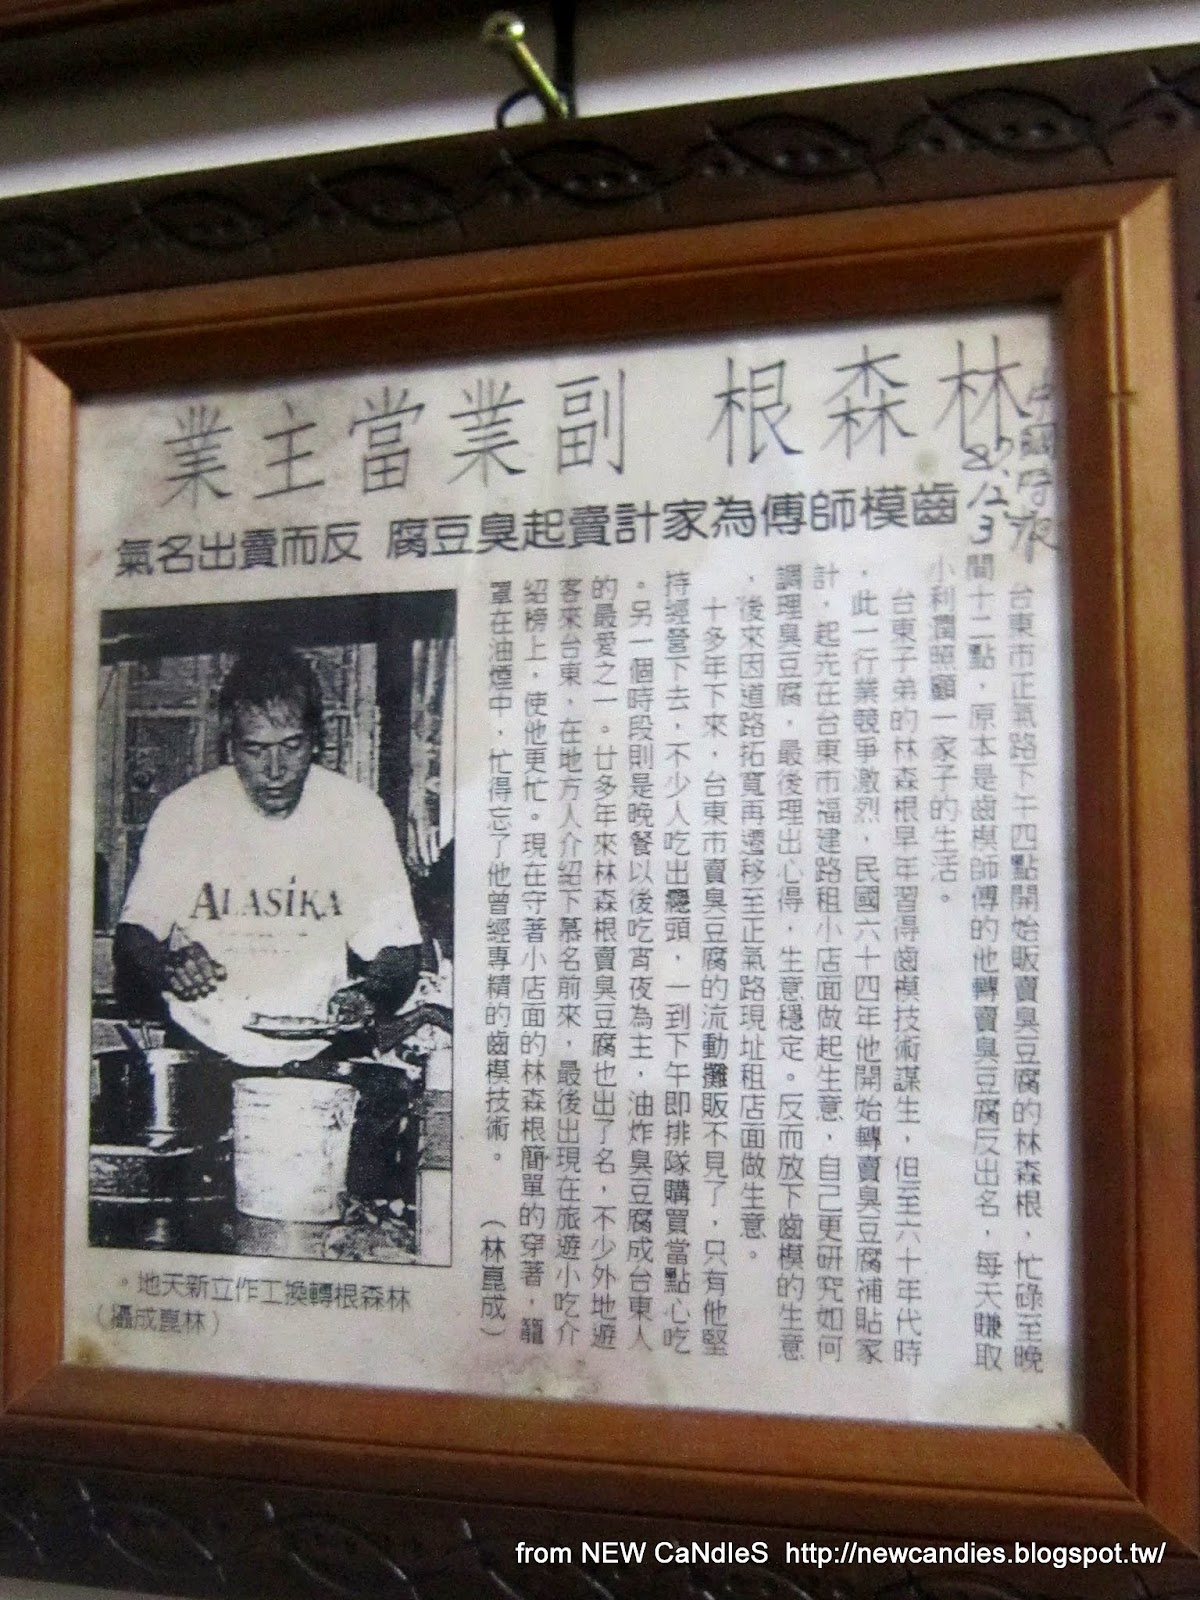 林森根 副業當主業
中國時報
87.12.3
齒模師傅為家計賣起臭豆腐 反而賣出名氣
台東市正氣路下午四點開始販賣臭豆腐的林森根，忙碌至晚
間十二點，原本是齒模師傅的他轉賣臭豆腐反出名，每天賺取
小利潤照顧一家子的生活。
台東子弟的林森根早年習得齒模技術謀生，但至六十年代時
，此一行業競爭激烈，民國六十四年他開始轉賣臭豆腐補貼家
計，起先在台東市福建路租小店面做起生意，自己更研究如何
調理臭豆腐，最後理出心得，生意穩定。反而放下齒模的生意
，後來因道路拓寬再遷移至正氣路現址租店面做生意。
十多年下來，台東市賣臭豆腐的流動攤販不見了，只有他堅
持經營下去，不少人吃出癮頭，一到下午即排隊購買當點心吃
。另一個時段則是晚餐以後吃宵夜為主，油炸臭豆腐成台東人
的最愛之一。廿多年來林森根賣臭豆腐也出了名，不少外地遊
客來台東，在地方人介紹下慕名前來，最後出現在旅遊小吃介
紹榜上，使他更忙。現在守著小店面的林森根簡單的穿著，籠
罩在油煙中，忙得忘了他曾經專精的齒模技術。 （林崑成）
ALASIKA
林森根轉換工作立新天地。
（林崑成攝）
from NEW CaNdleS http://newcandies.blogspot.tw/